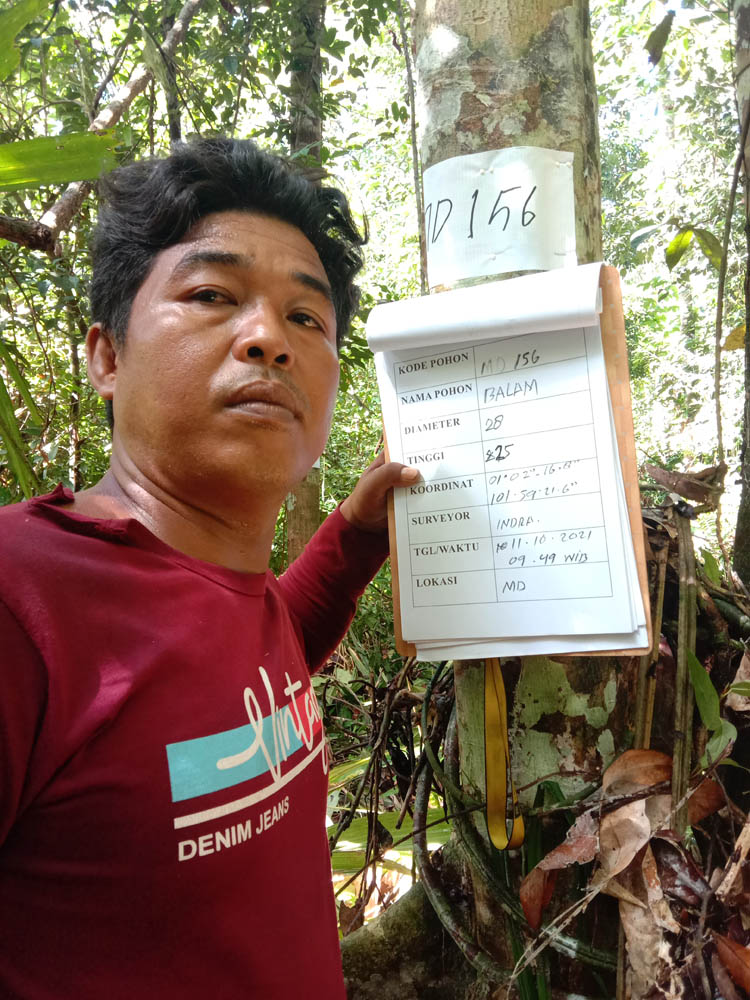 MD 156
KODE POHON MD 156
NAMA POHON BALAM
DIAMETER 28
TINGGI 25
KOORDINAT
101-59-21-6"
SURVEYOR INDRA.
TGL/WAKTU 11-10-2021
09.49 WIB
LOKASI MD
DENIM JEANS